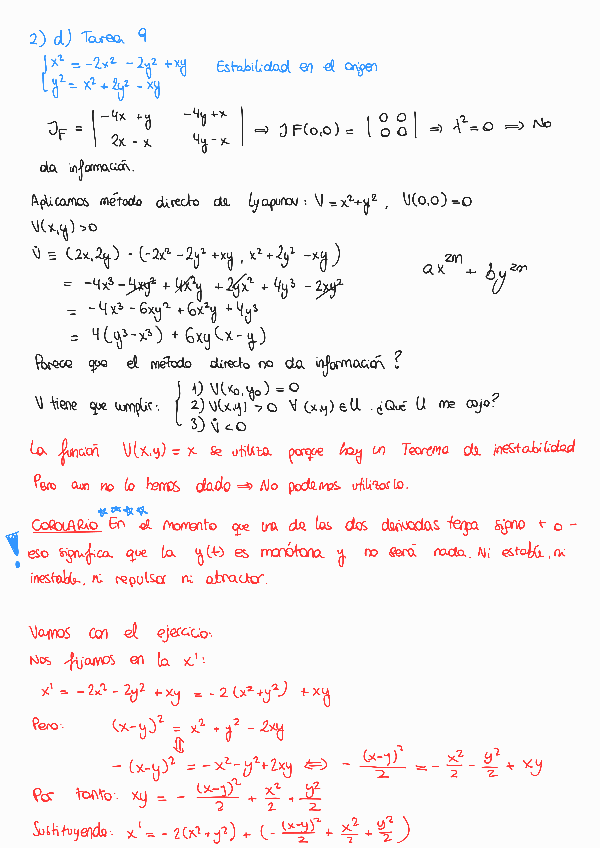 2) d) Tarea 9
x² = -2x² - 2y² + xy Estabilidad en el origen
y² = x² + 2y² - xy
J_F = | -4x + y -4y + x | ⇒ JF(0,0) = | 0 0 | ⇒ λ² = 0 ⇒ No
| 2x - x 4y - x | | 0 0 |
da información.
Aplicamos método directo de Lyapunov: V = x² + y², V(0,0) = 0
V(x,y) > 0
V̇ = (2x, 2y) · (-2x² - 2y² + xy, x² + 2y² - xy)
= -4x³ - 4xy² + 4x²y + 2yx² + 4y³ - 2xy²
ax²ᵐ + by²ⁿ
= -4x³ - 6xy² + 6x²y + 4y³
= 4(y³ - x³) + 6xy(x - y)
Parece que el método directo no da información?
V tiene que cumplir: 1) V(x₀, y₀) = 0
2) V(x,y) > 0 ∀ (x,y) ∈ U. ¿Qué U me cojo?
3) V̇ < 0
La función V(x,y) = x se utiliza porque hay un Teorema de inestabilidad
Pero aun no lo hemos dado ⇒ No podemos utilizarlo.
COROLARIO **** En el momento que una de las dos derivadas tenga signo + o -
! eso significa que la y(t) es monótona y no será nada. Ni estable, ni
inestable, ni repulsor ni atractor.
Vamos con el ejercicio:
Nos fijamos en la x':
x' = -2x² - 2y² + xy = -2(x² + y²) + xy
Pero: (x-y)² = x² + y² - 2xy
⇕
-(x-y)² = -x² - y² + 2xy ⇔ -(x-y)²/2 = -x²/2 - y²/2 + xy
Por tanto: xy = -(x-y)²/2 + x²/2 + y²/2
Sustituyendo: x' = -2(x² + y²) + (-(x-y)²/2 + x²/2 + y²/2)